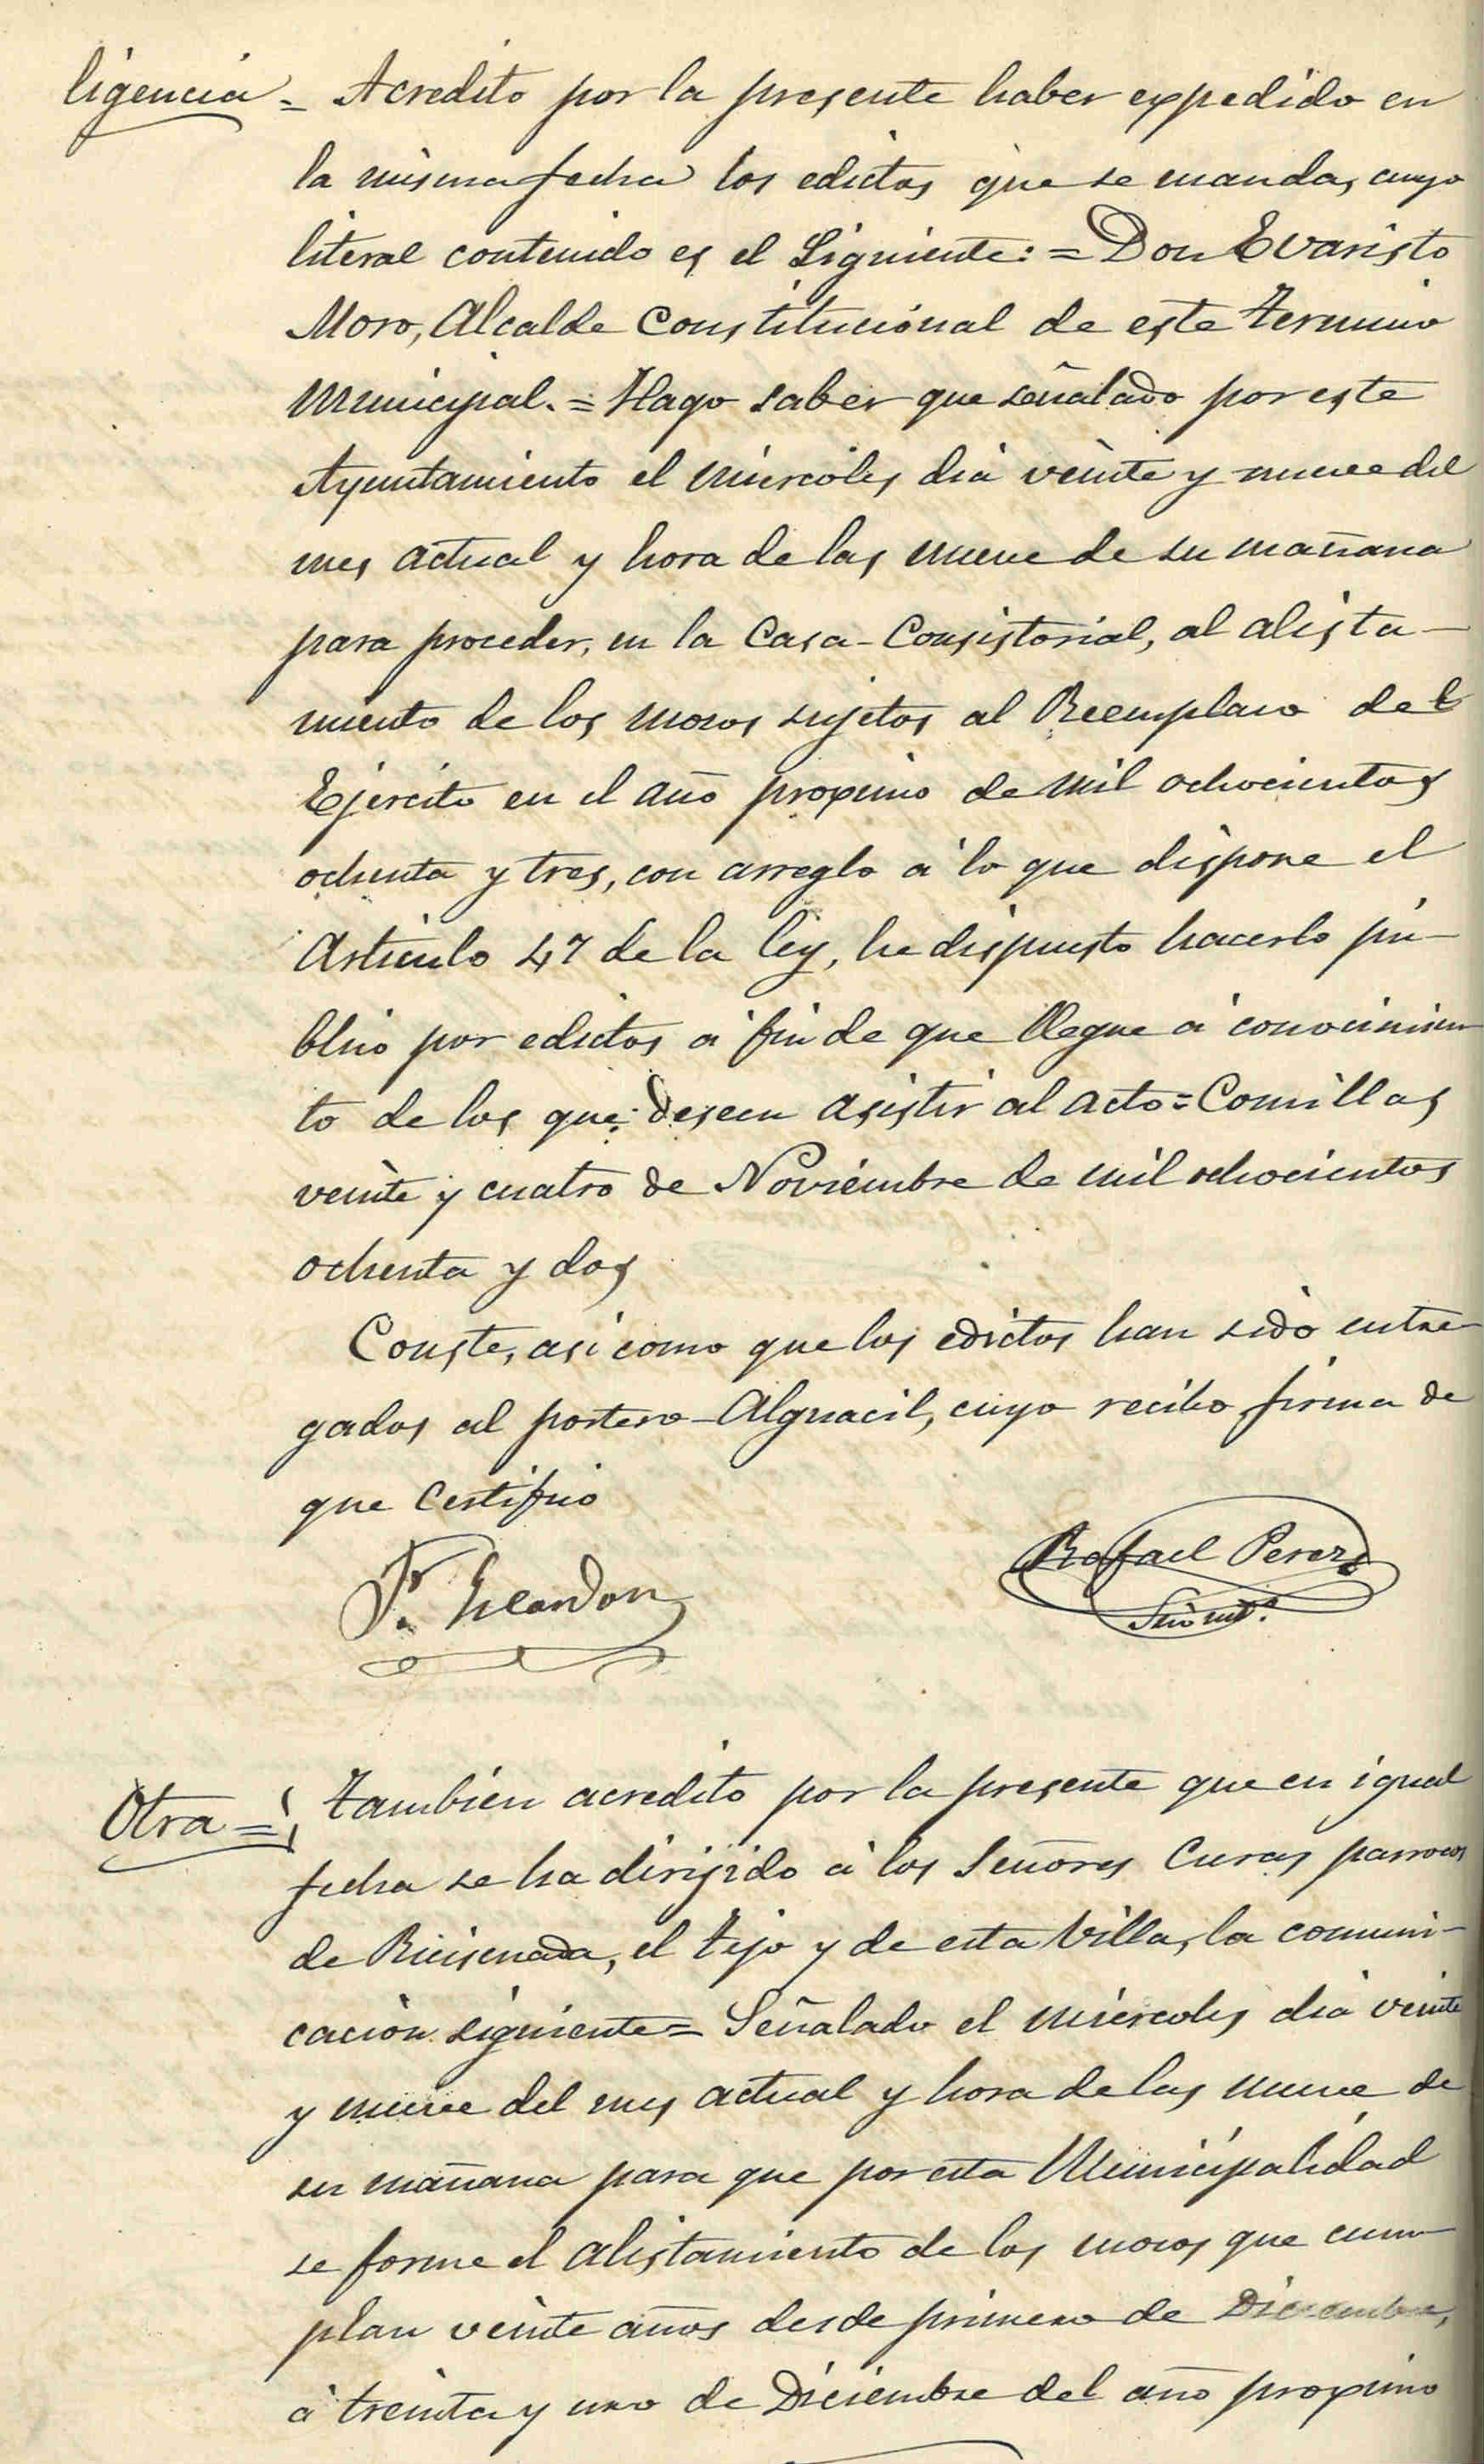 ligencia = Acredito por la presente haber expedido en
la misma fecha los edictos que se manda, cuyo
literal contenido es el Siguiente: = Don Evaristo
Moro, Alcalde Constitucional de este termino
Municipal. = Hago saber que señalado por este
Ayuntamiento el miercoles dia veinte y nueve del
mes actual y hora de las nueve de su mañana
para proceder, en la Casa-Consistorial, al alista-
miento de los mozos sujetos al Reemplazo del
Ejercito en el año proximo de mil ochocientos
ochenta y tres, con arreglo á lo que dispone el
Articulo 47 de la ley, he dispuesto hacerlo pú-
blico por edictos á fin de que llegue á conocimien
to de los que deseen asistir al acto = Comillas
veinte y cuatro de Noviembre de mil ochocientos
ochenta y dos
Conste, asi como que los edictos han sido entre-
gados al portero-Alguacil, cuyo recibo firma de
que Certifico
Rafael Perez
Otra = También acredito por la presente que en igual
fecha se ha dirijido á los Señores Curas parrocos
de Ruiseñada, el Tejo y de esta Villa, la comuni-
cación siguiente = Señalado el miércoles dia veinte
y nueve del mes actual y hora de las nueve de
su mañana para que por esta Municipalidad
se forme el alistamiento de los mozos que cum-
plan veinte años desde primero de Diciembre,
á treinta y uno de Diciembre del año proximo